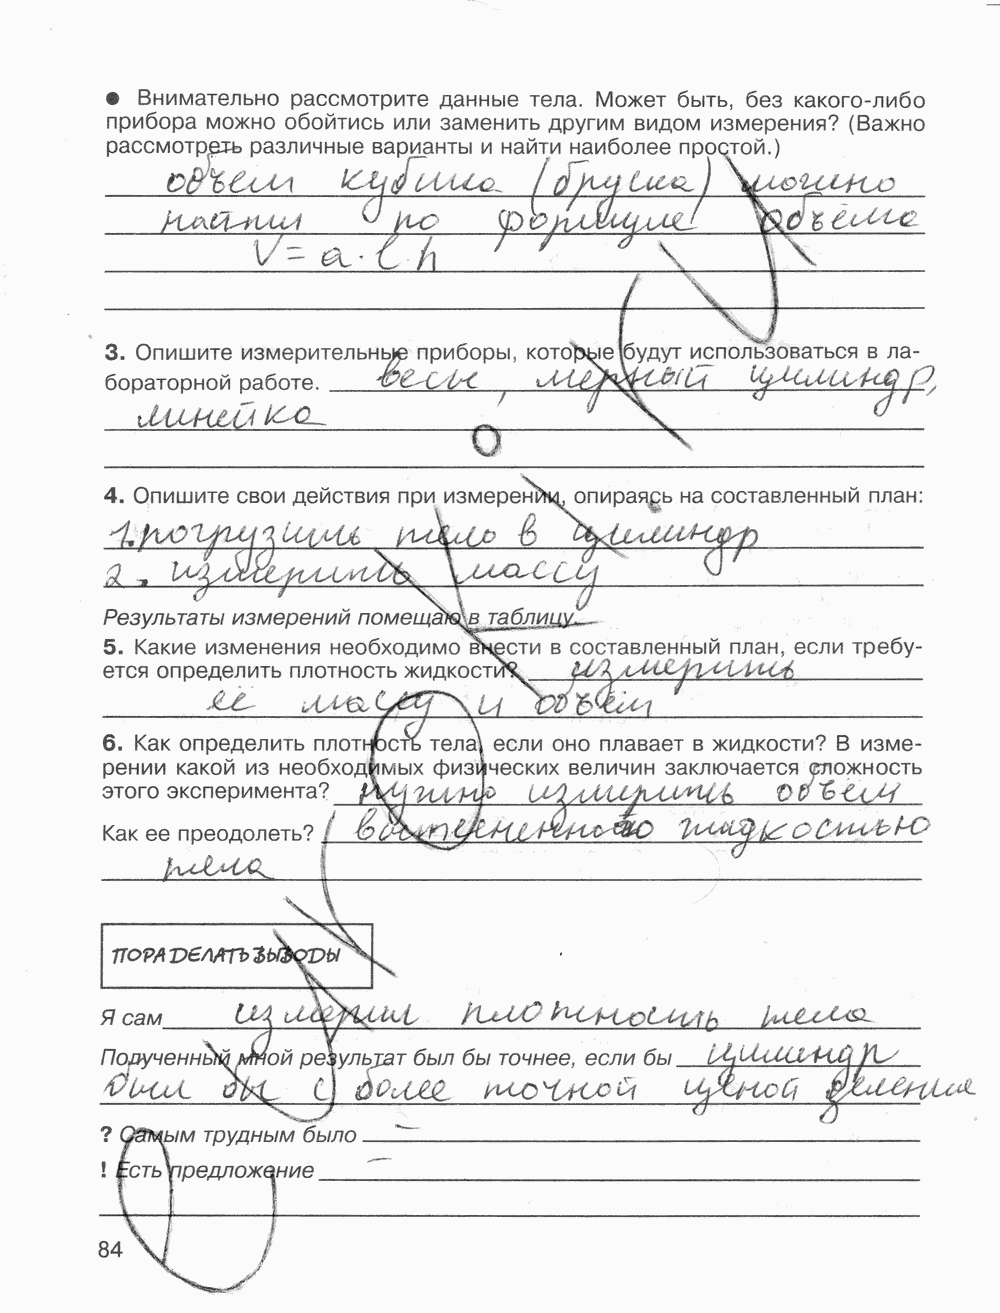 ● Внимательно рассмотрите данные тела. Может быть, без какого-либо
прибора можно обойтись или заменить другим видом измерения? (Важно
рассмотреть различные варианты и найти наиболее простой.)
объем кубика (бруска) можно
найти по формуле объёма
V = a · b · h
3. Опишите измерительные приборы, которые будут использоваться в ла-
бораторной работе. весы, мерный цилиндр,
линейка
4. Опишите свои действия при измерении, опираясь на составленный план:
1. погрузить тело в цилиндр
2. измерить массу
Результаты измерений помещаю в таблицу.
5. Какие изменения необходимо внести в составленный план, если требу-
ется определить плотность жидкости? измерить
её массу и объём
6. Как определить плотность тела, если оно плавает в жидкости? В изме-
рении какой из необходимых физических величин заключается сложность
этого эксперимента? нужно измерить объём
Как ее преодолеть? жидкостью
тела
ПОРА ДЕЛАТЬ ВЫВОДЫ
Я сам измерил плотность тела
Полученный мной результат был бы точнее, если бы цилиндр
был бы с более точной ценой деления
? Самым трудным было –
! Есть предложение –
84